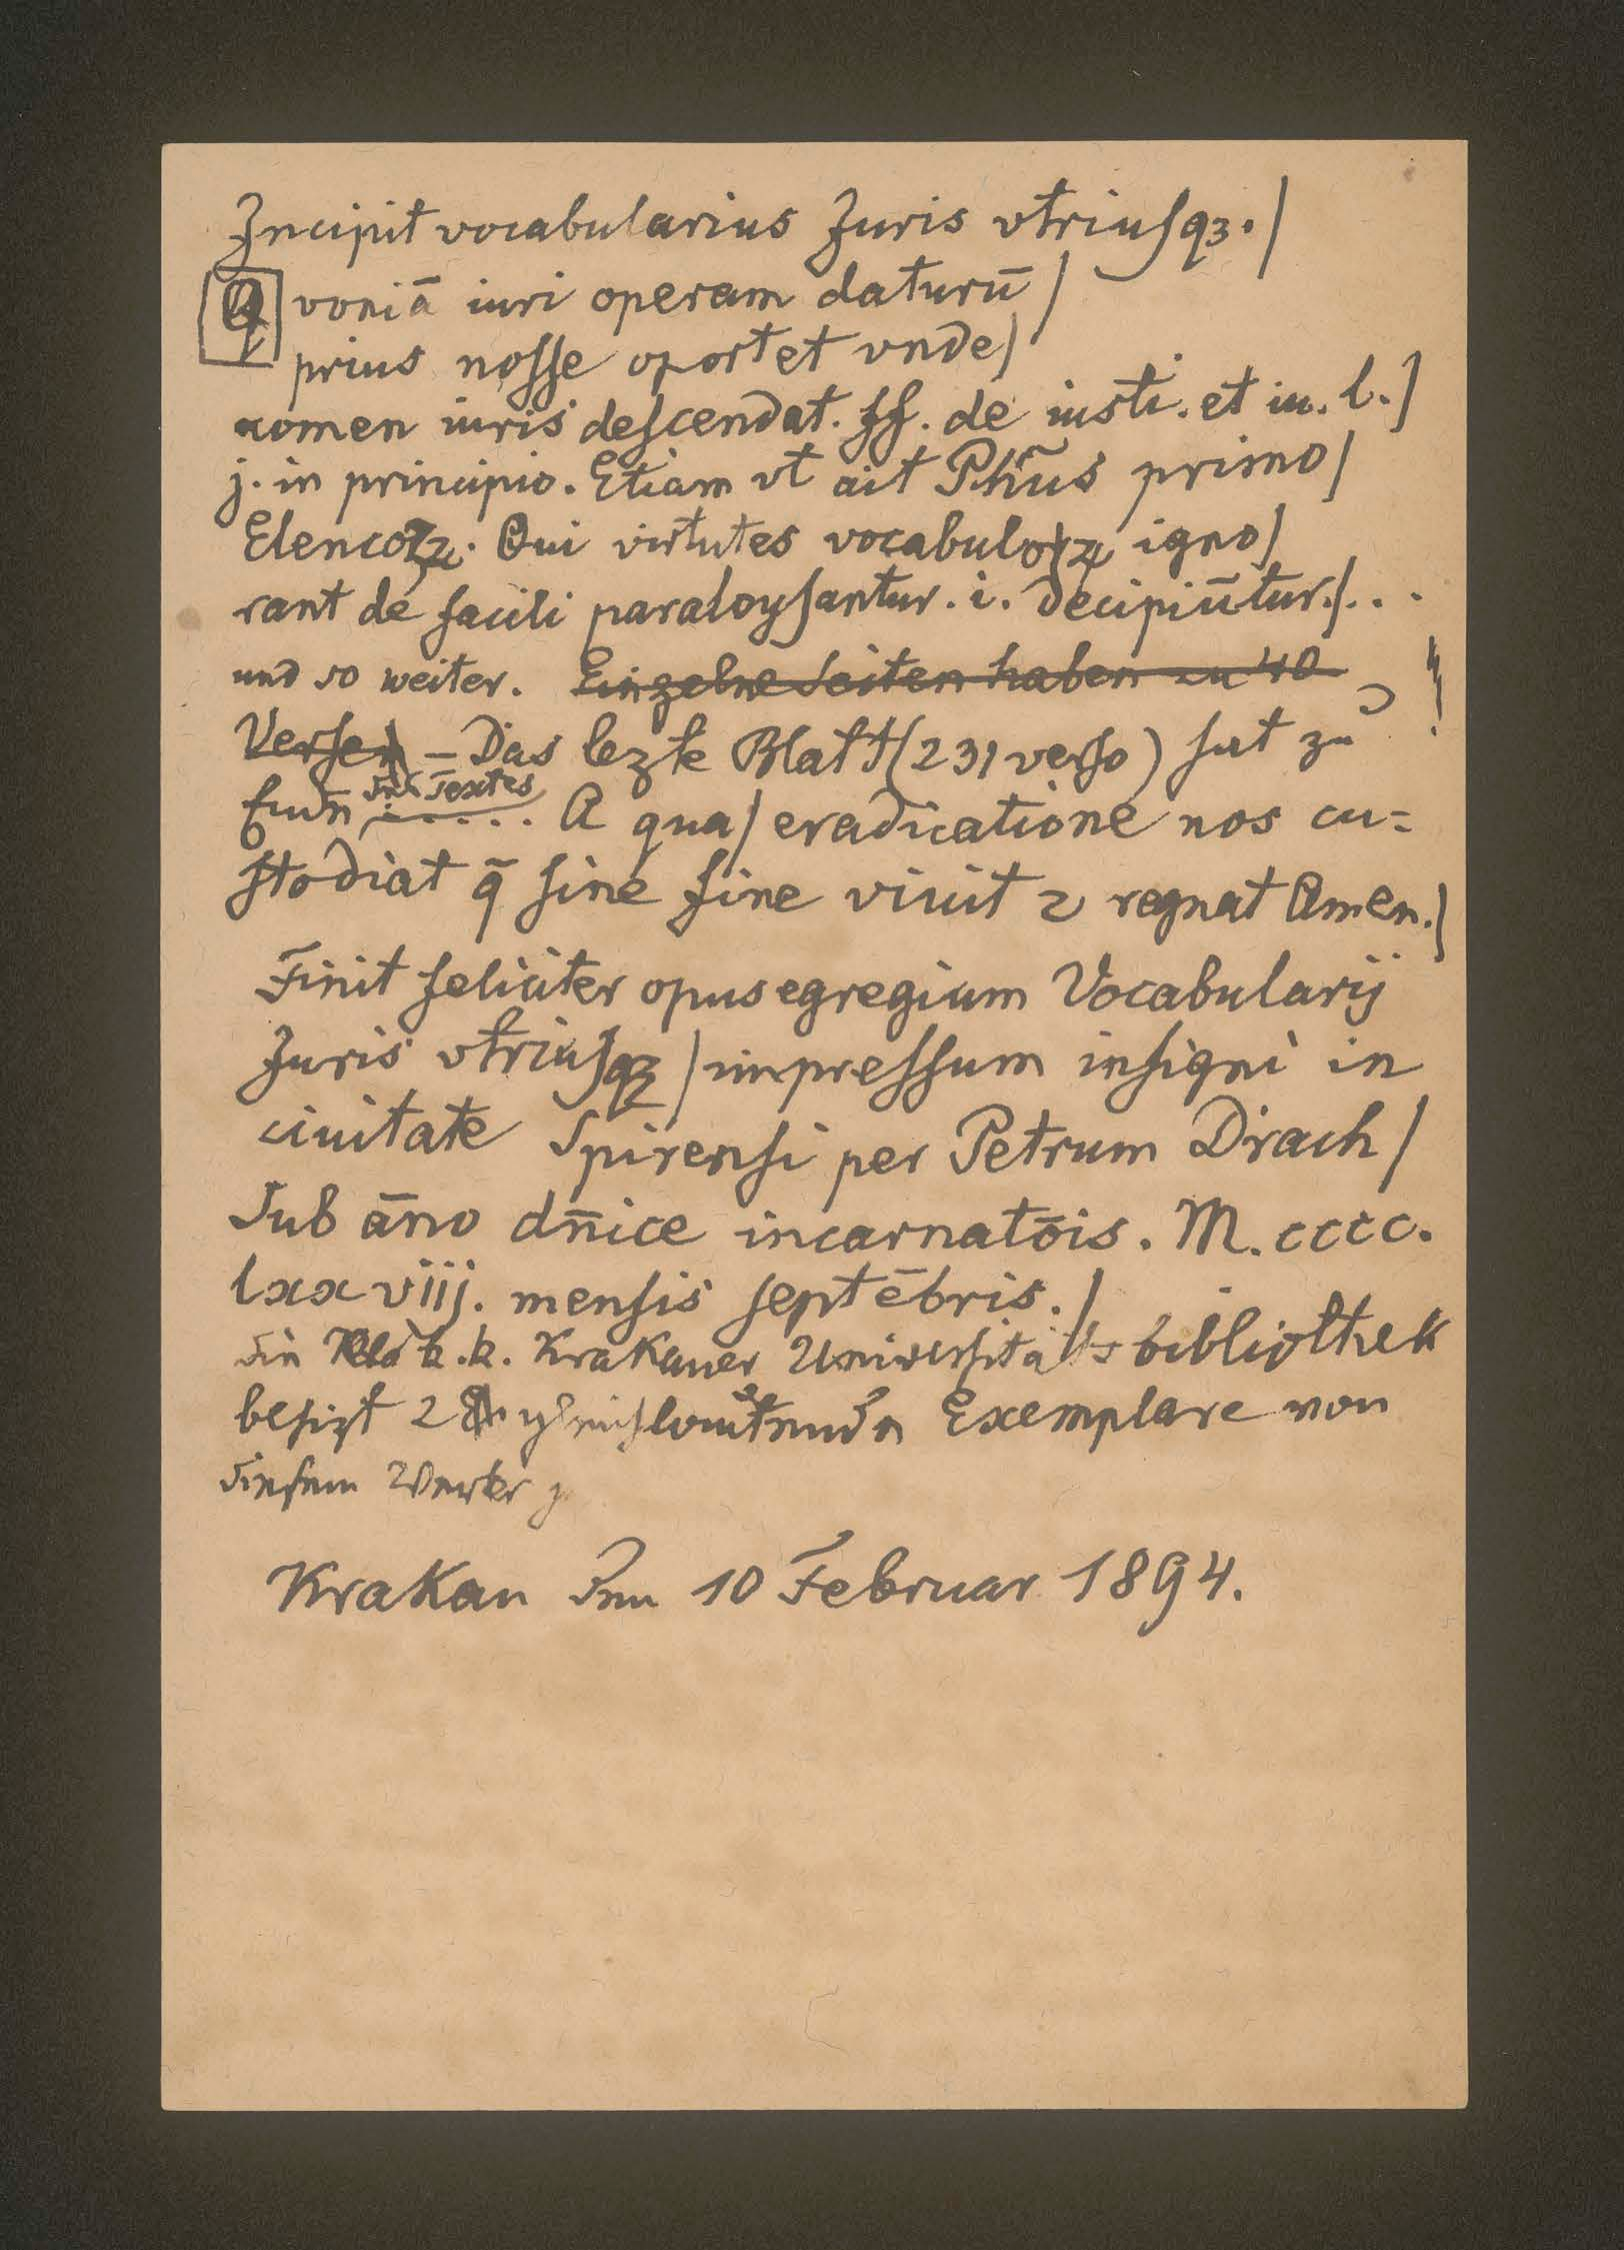 Incipit vocabularius Juris vtriusqꝫ./
Q voniā iuri operam daturū/
prius nosse oportet vnde/
nomen iuris descendat. ff. de iusti. et iu. l./
j. in principio. Etiam vt ait Ph̄us primo/
Elencoꝝ. Qui virtutes vocabuloꝝ igno/
rant de facili paraloysantur. i. decipiūtur./...
und so weiter. Einzelne Seiten haben zu 40
Versen – Das lezte Blatt (231 verso) hat zu
Ende des Textes ..... A qua/ eradicatione nos cu=
stodiat q̄ sine fine viuit ⁊ regnat Amen./
Finit feliciter opus egregium Vocabularij
Juris vtriusqꝫ/ impressum insigni in
ciuitate Spirensi per Petrum Drach/
Sub āno dn̄ice incarnatōis. M. cccc.
lxxviij. mensis septēbris./
Die k.k. Krakauer Universitätsbibliothek
besizt 2 gleichlautende Exemplare von
diesem Werke
Krakau den 10 Februar 1894.